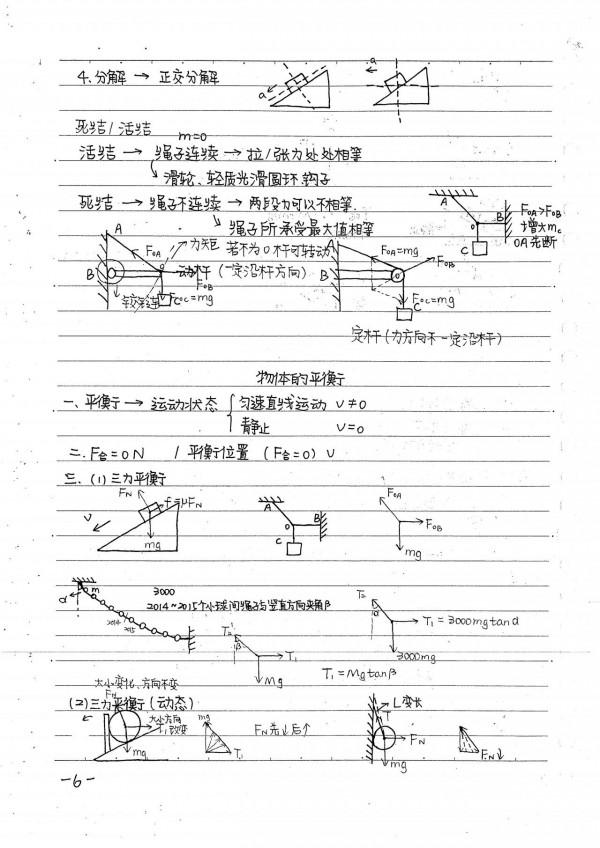 4.分解 → 正交分解
a
a
死结/活结
m=0
活结 → 绳子连续 → 拉/张力处处相等
滑轮、轻质光滑圆环、钩子
死结 → 绳子不连续 → 两段力可以不相等.
绳子所承受最大值相等
A B O C
FOA>FOB
增大mc
OA先断
A
FOA
力矩 若不为0杆可转动
B
动杆(一定沿杆方向)
FOB
铰链连
C
FOC=mg
FOA=mg
FOB
FOC=mg
C
定杆(力方向不一定沿杆)
物体的平衡
一、平衡 → 运动状态 { 匀速直线运动 v≠0
静止 v=0
二. F合=0N / 平衡位置 (F合=0) v
三. (1)三力平衡
FN
f=μFN
v
mg
A
O
B
C
FOA
FOB
mg
m
α
3000
2014~2015个小球间绳子与竖直方向夹角β
2014
2015
T2'
β
T1
Mg
T1=Mgtanβ
T2
α
T1=3000mgtanα
3000mg
大小变化、方向不变
(2)三力平衡(动态)
FN
大小方向
T1改变
mg
mg
T1
FN先↓后↑
L变长
T
FN
mg
FN↓
-6-